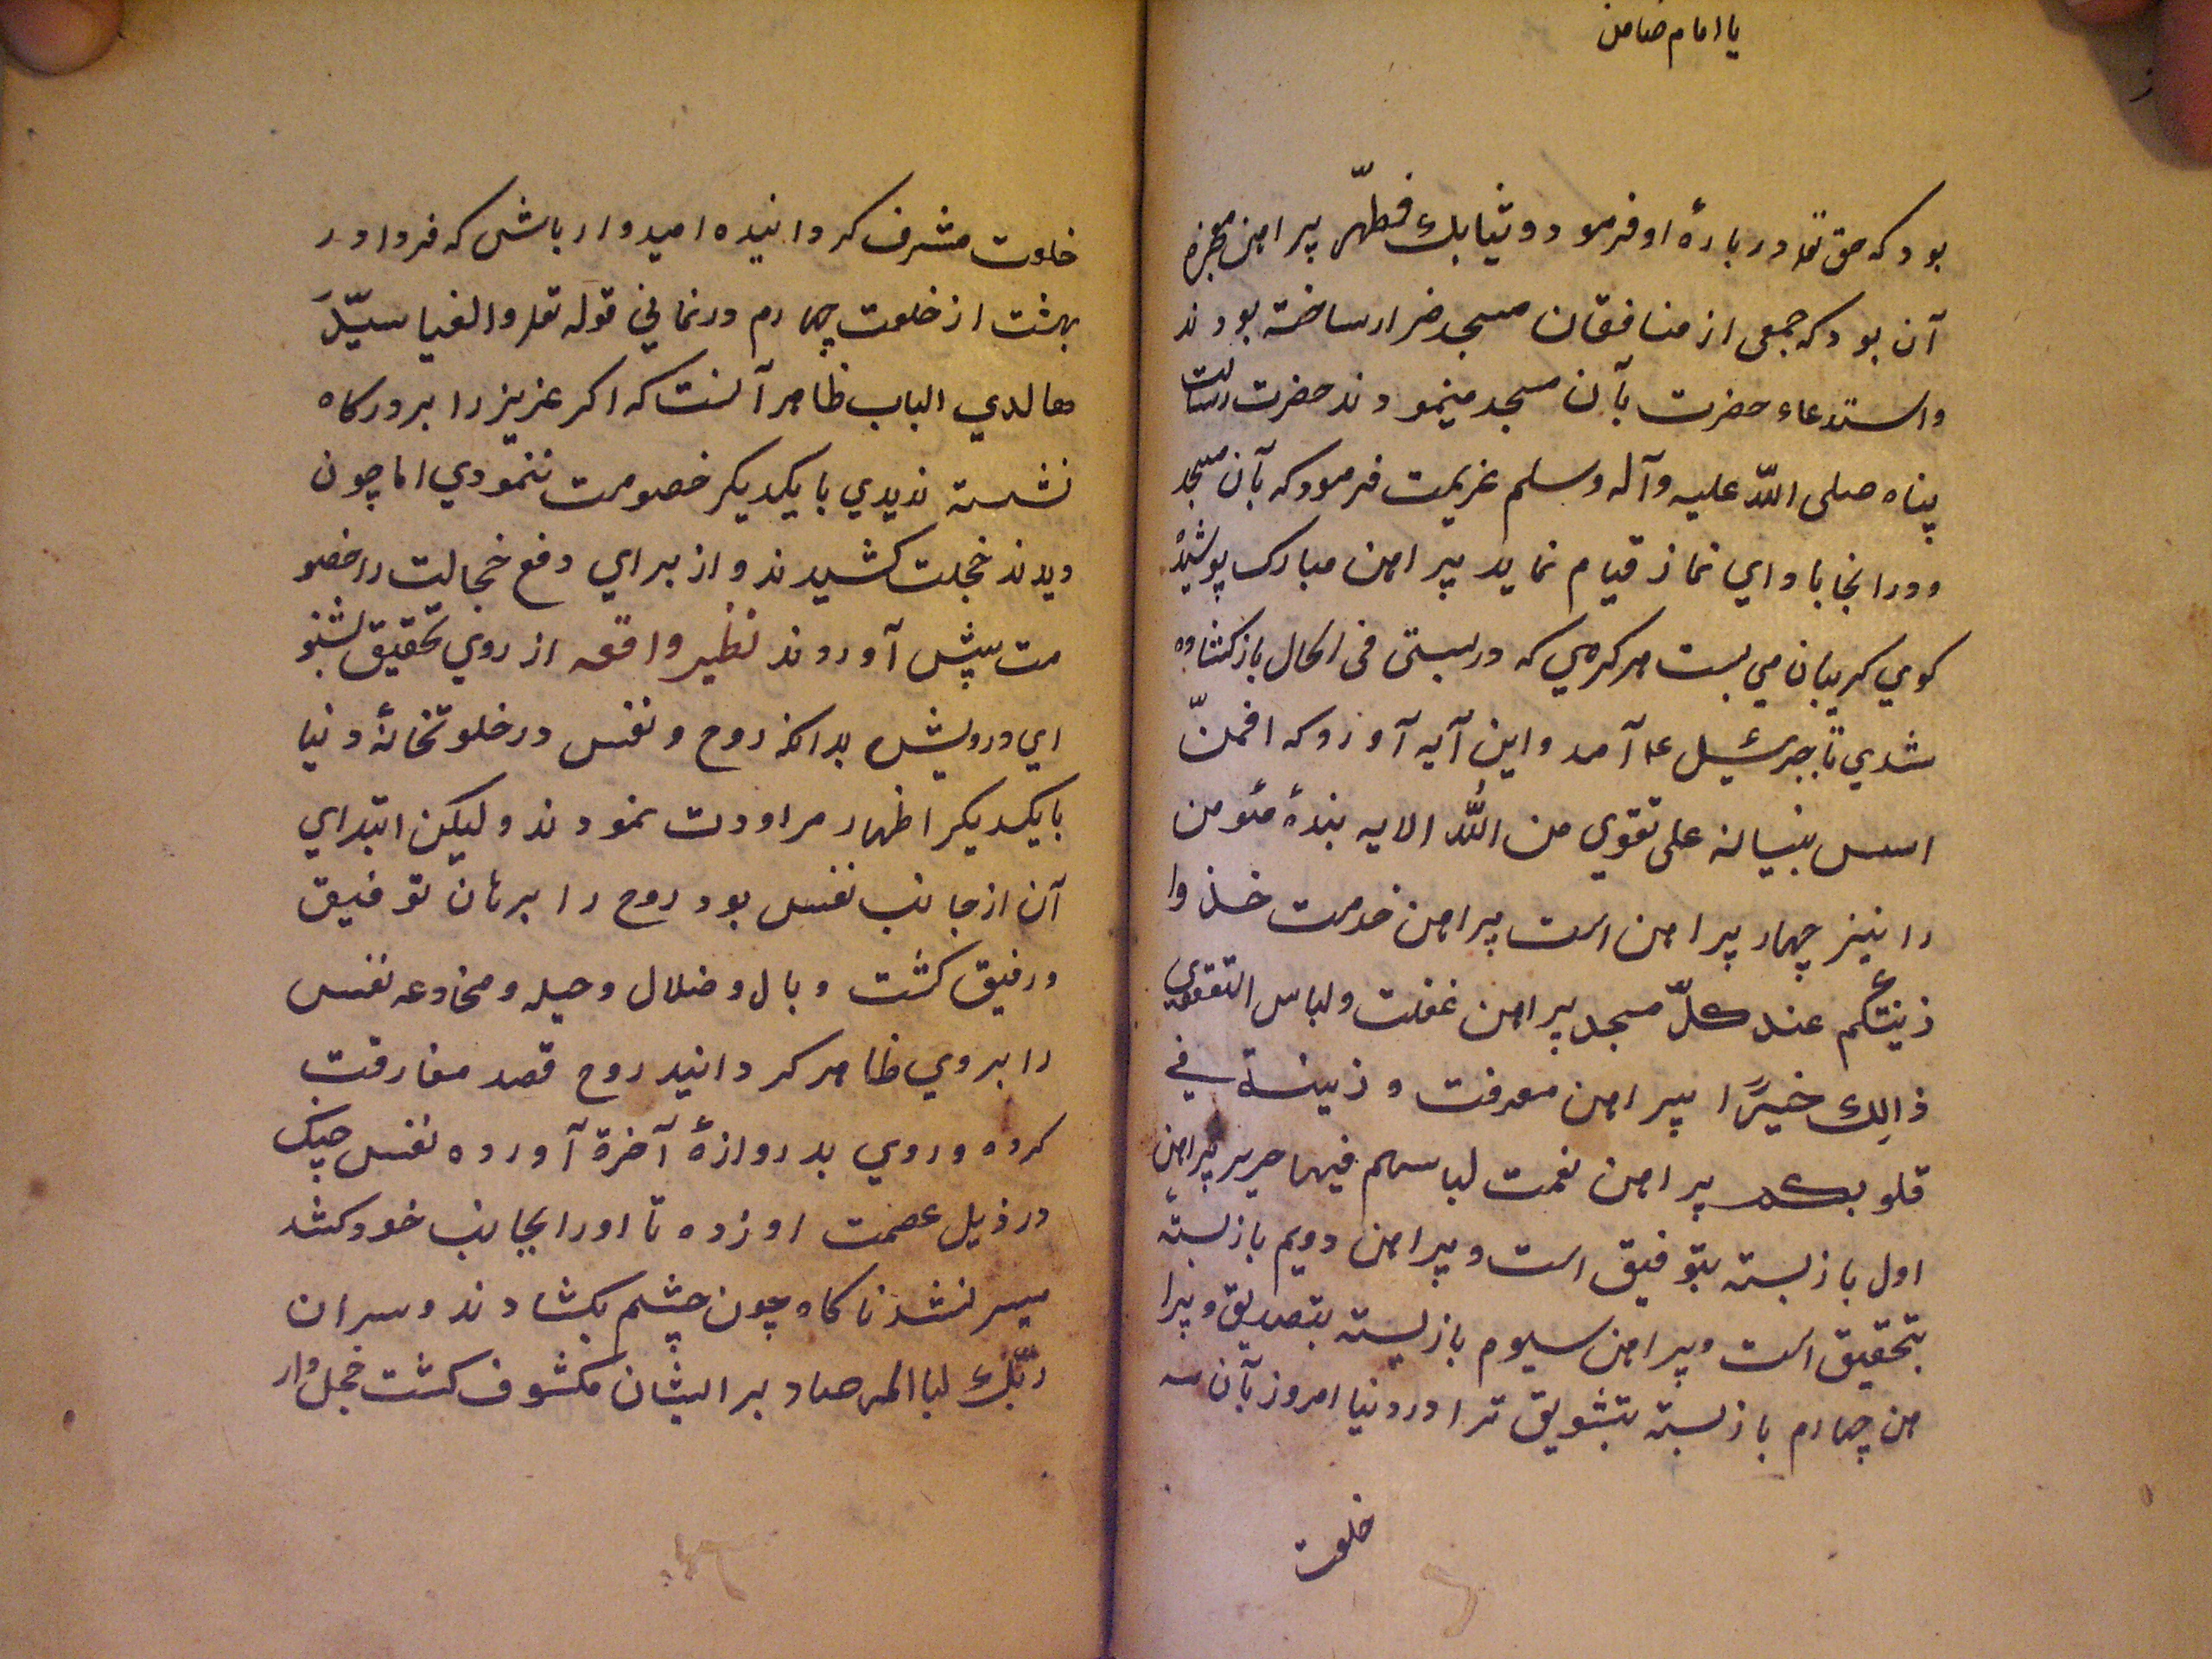 يا امام ضامن
بود که حق تعا در بارهٔ او فرمود و ثيابك فطهّر پيراهن معجزه
آن بود که جمعی از منافقان مسجد ضرار ساخته بودند
و استدعاء حضرت بآن مسجد مينمودند حضرت رسالت
پناه صلی اللّه عليه وآله وسلم عزيمت فرمود که بآن مسجد
رود و در انجا باداي نماز قيام نمايد پيراهن مبارك پوشيدهٔ
کوي کريبان مي بست هر کرهي که در بستی فی الحال باز کشاده
شدي تا جبرئيل ع آمد و اين آيه آورد که افمن
اسس بنيانه علی تقوي من اللّه الايه بندهٔ مئومن
را نيز چهار پيراهن است پيراهن خدمت خذوا
زينتكم عند كلّ مسجد پيراهن عفت و لباس التقوي
ذالك خيرًا پيراهن معرفت و زينه في
قلوبكم پيراهن نعمت لباسهم فيها حرير پيراهن
اول باز بسته بتوفيق است و پيراهن دويم باز بسته
بتحقيق است و پيراهن سيوم باز بسته بتصديق و پيرا
هن چهارم باز بسته بتشويق ترا در دنيا امروز بآن سه
خلعت
خلعت مشرف کردانيده اميدوار باش که فردا در
بهشت از خلعت چهارم در نماني قوله تعا والفيا سيّدَ
ها لدي الباب ظاهر آنست که اکر عزيز را بر درکاه
نشسته نديدي با يکديکر خصومت ننمودي اما چون
ديدند خجلت کشيدند و از براي دفع خجالت راه خصو
مت پيش آوردند نظير واقعه از روي تحقيق بشنو
اي درويش بدانکه روح و نفس در خلوتخانهٔ دنيا
با يکديکر اظهار مراودت نمودند وليکن ابتداي
آن از جانب نفس بود روح را برهان توفيق
رفيق کشت وبال و ضلال و حيله و مخادعه نفس
را بروي ظاهر کردانيد روح قصد مفارقت
کرده و روي بدروازهٔ آخرة آورده نفس چنك
در ذيل عصمت او زده تا او را بجانب خود کشد
ميسر نشد ناکاه چون چشم بکشادند و سر ان
ربّك لبا المرصاد بر ايشان مکشوف کشت خجل وار